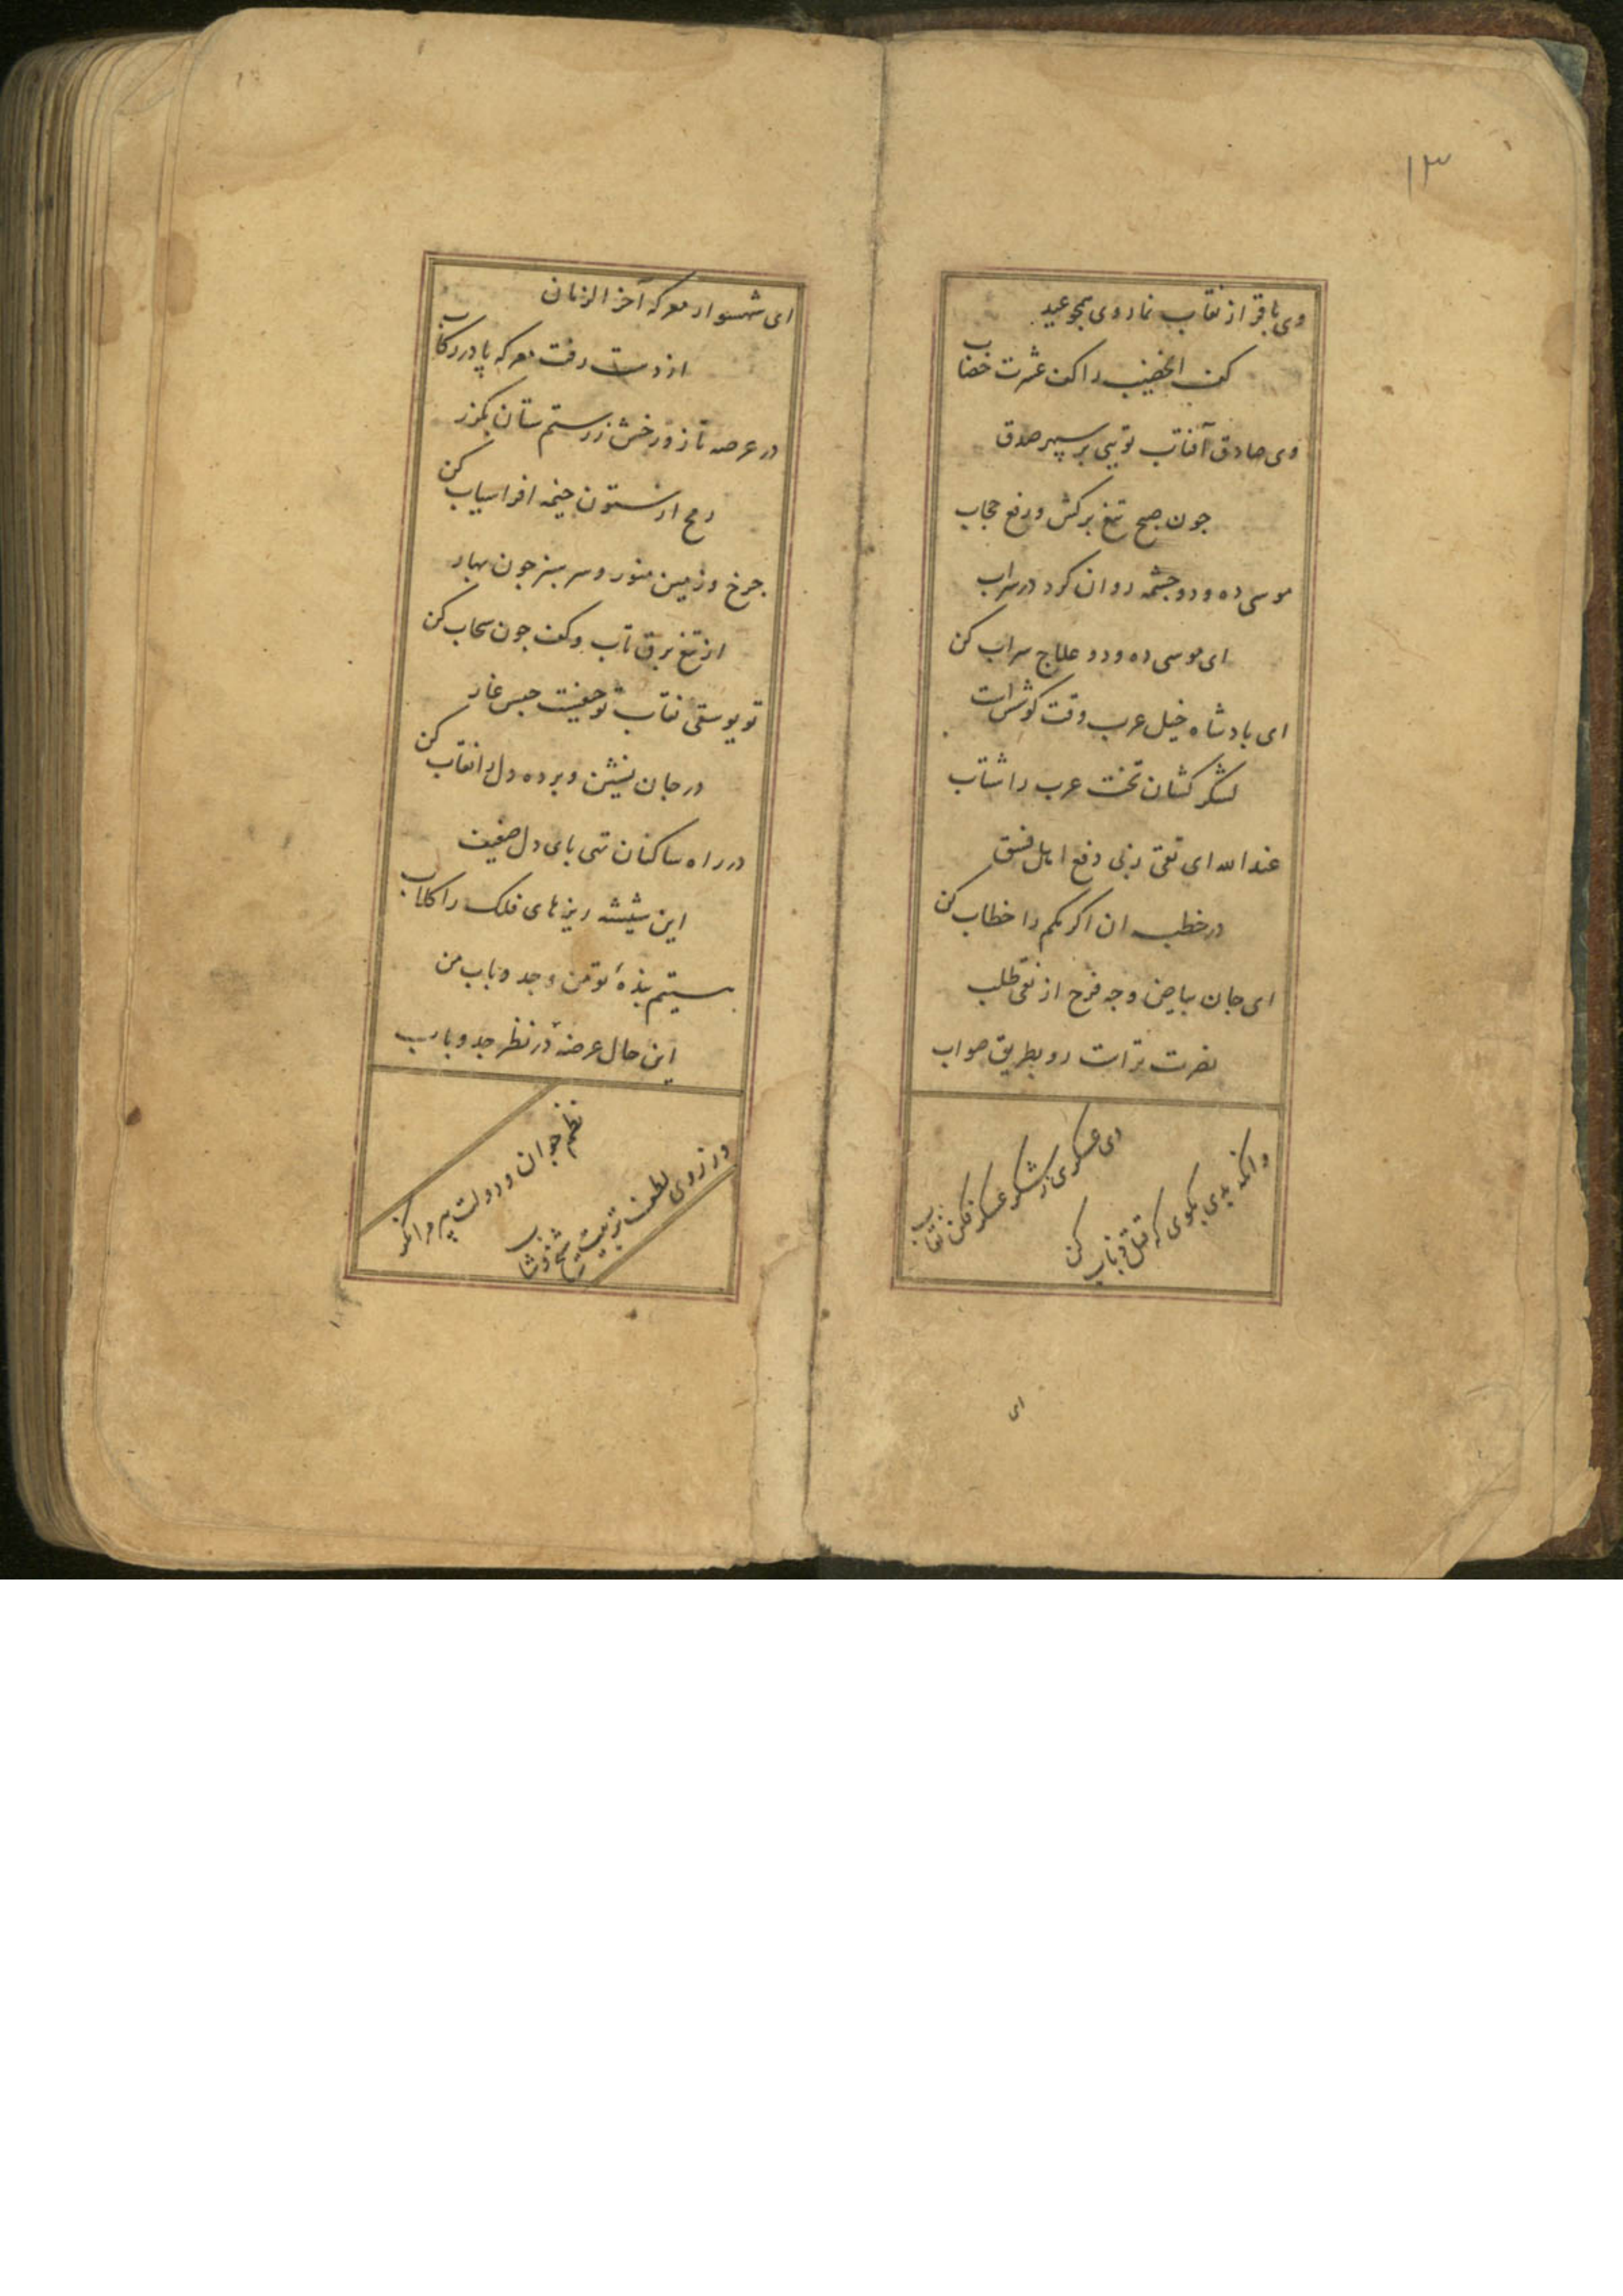 ۱۳
وی باقر از نقاب نما روی همچو عید
کف الخضیب را کف عشرت خضاب
وی صادق آفتاب تویی بر سپهر صدق
جون صبح تیغ برکش و رفع حجاب
موسی ده و دو چشمه روان کرد در سراب
ای موسی ده و دو علاج سراب کن
ای بادشاه خیل عرب وقت کوشش است
لشکر کشان تخت عرب را شتاب
عند الله ای تقی بزنی دفع اهل فسق
در خطبه ان اکرمکم را خطاب کن
ای جان بیاض وجه فرح از نقی طلب
نصرت تراست رو بطریق صواب
وی عسکری ز لشکر عسکر فکن نقاب
وانکه بدی بکوی که قتل ذباب کن
ای
ای شهسوار معرکه آخر الزمان
از دست رفت معرکه پا در رکاب
در عرصه تاز و رخش ز رستم ستان بکرز
رمح از ستون خیمه افراسیاب کن
جرخ و زمین منور و سرسبز جون بهار
از تیغ برق تاب و کف جون سحاب کن
تو یوسفی نقاب تو حیفست حبس غار
در جان نشین و پرده دل را نقاب کن
در راه ساکنان تهی بای دل ضعیف
این شیشه ریزهای فلک را کلاب
هستیم بندهٔ تو من و جد و باب من
این حال عرضه در نظر جد و باب
نظم جوان و دولت پیر مرا نکر
وز روی لطف تربیت شیخ و شاب